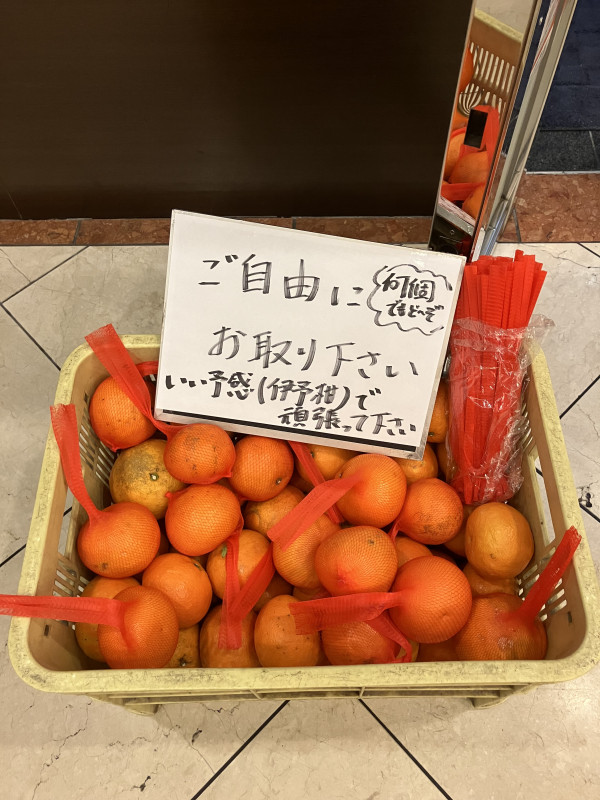 ご自由に
何個
でもど〜ぞ
お取り下さい
いい予感(伊予柑)で
頑張って下さい